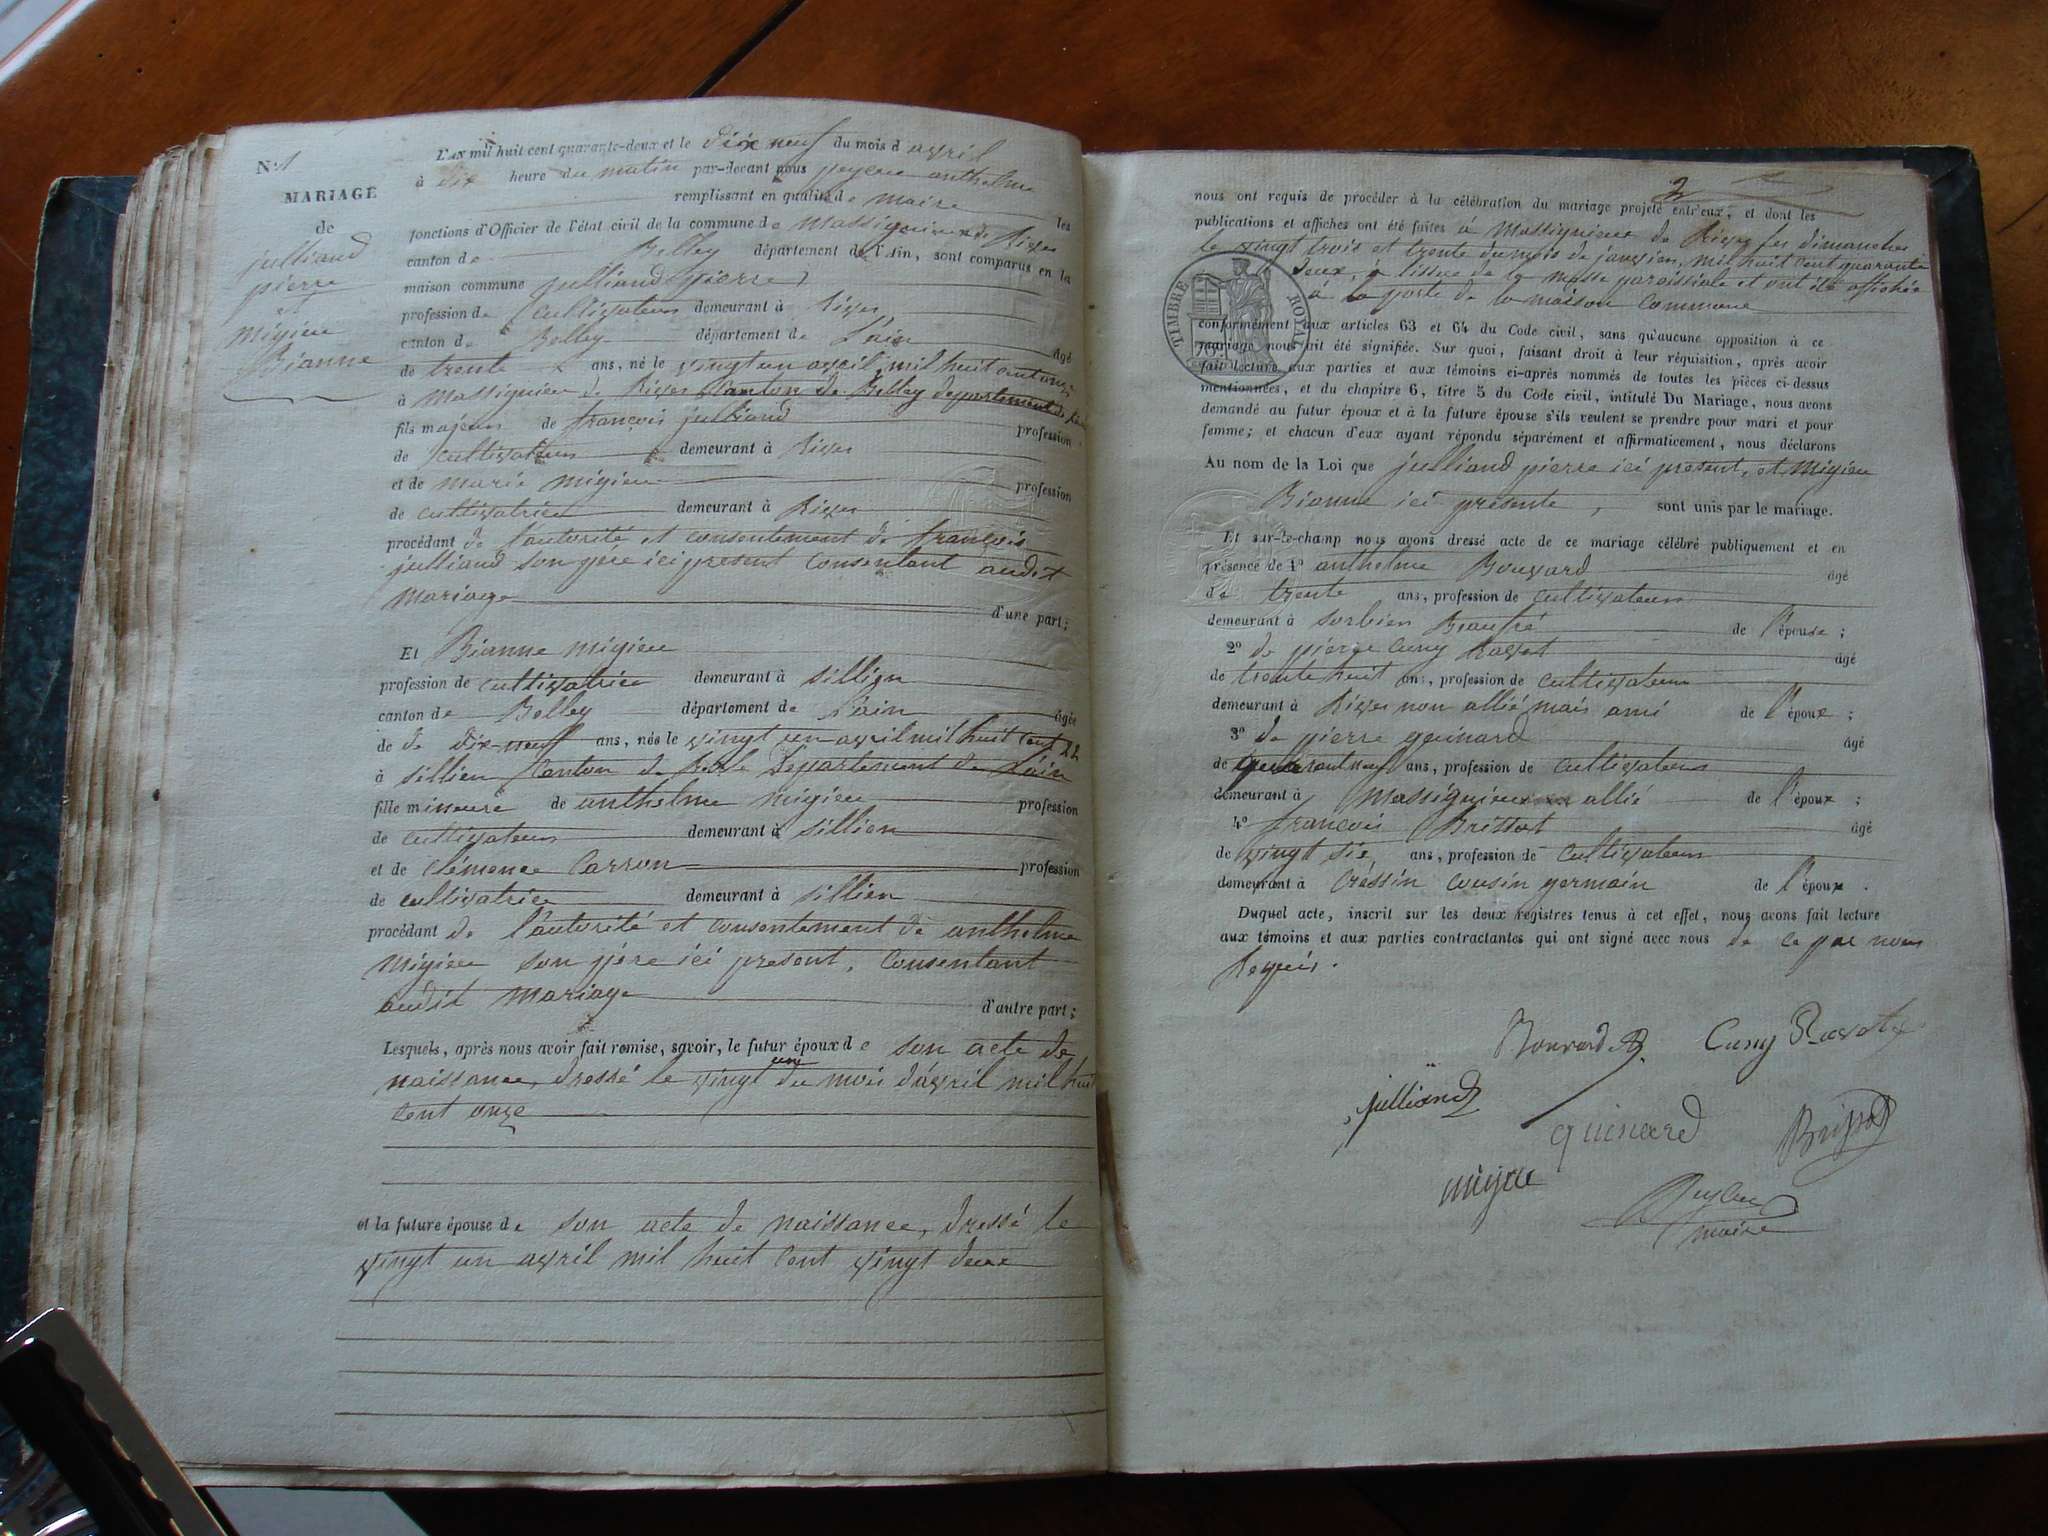 N° 1
MARIAGE
de
julliand
pierre
et
migieu
Bianne
L'AN mil huit cent quarante-deux et le dix neuf du mois d avril
à dix heure du matin par-devant nous peyeru anthelme
remplissant en qualité de maire les
fonctions d'Officier de l'état civil de la commune de Massignieux de Rives
canton de Belley département de l'Ain, sont comparus en la
maison commune julliand pierre
profession de cultivateur demeurant à Rives
canton de Belley département de l'ain âgé
de trente ans, né le vingt un avril mil huit cent onze
à Massignieu de Rives Canton de Belley departement de l'ain
fils majeur de françois julliand profession
de cultivateur demeurant à Rives
et de marie migieu profession
de cultivatrice demeurant à Rives
procédant de l'autorité et consentement de françois
julliand son père ici present consentant audit
mariage d'une part;
Et Bianne migieu
profession de cultivatrice demeurant à sillien
canton de Belley département de l'ain âgée
de de dix-neuf ans, née le vingt un avril mil huit cent 22
à sillien Canton de Belle departement de l'ain
fille mineure de anthelme migieu profession
de cultivateur demeurant à sillien
et de clémence Carron profession
de cultivatrice demeurant à sillien
procédant de l'autorité et consentement de anthelme
migieu son père ici present, consentant
audit mariage d'autre part;
Lesquels, après nous avoir fait remise, savoir, le futur époux d e son acte de
naissance, dressé le vingt une du mois d'avril mil huit
cent onze
et la future épouse d e son acte de naissance, dressé le
vingt un avril mil huit cent vingt deux
2
nous ont requis de procéder à la célébration du mariage projeté entr'eux, et dont les
publications et affiches ont été faites à Massignieux de Rives les dimanches
le vingt trois et trente du mois de janvier, mil huit cent quarante
deux, à l'issue de la messe paroissiale et ont été affichée
à la porte de la maison commune
TIMBRE ROYAL
conformément aux articles 63 et 64 du Code civil, sans qu'aucune opposition à ce
mariage nous ait été signifiée. Sur quoi, faisant droit à leur réquisition, après avoir
fait lecture aux parties et aux témoins ci-après nommés de toutes les pièces ci-dessus
mentionnées, et du chapitre 6, titre 5 du Code civil, intitulé Du Mariage, nous avons
demandé au futur époux et à la future épouse s'ils veulent se prendre pour mari et pour
femme; et chacun d'eux ayant répondu séparément et affirmativement, nous déclarons
Au nom de la Loi que julliand pierre ici present, et migieu
Bianne ici présente, sont unis par le mariage.
Et sur-le-champ nous avons dressé acte de ce mariage célébré publiquement et en
présence de 1° anthelme Bouvard âgé
de trente ans, profession de cultivateur
demeurant à sorbien Beaufré de l'épouse;
2° de pierre Cuny Ravot âgé
de trente huit ans, profession de cultivateur
demeurant à Rives non allié mais ami de l'époux;
3° de pierre guinard âgé
de quarant neuf ans, profession de cultivateur
demeurant à Massignieux allié de l'époux;
4° françois Brissot âgé
de vingt six, ans, profession de cultivateur
demeurant à Cressin cousin germain de l'époux.
Duquel acte, inscrit sur les deux registres tenus à cet effet, nous avons fait lecture
aux témoins et aux parties contractantes qui ont signé avec nous de ce par nous
Requis.
Bouvard Cuny Ravot
julliand
guinard Brissot
migieu
maire